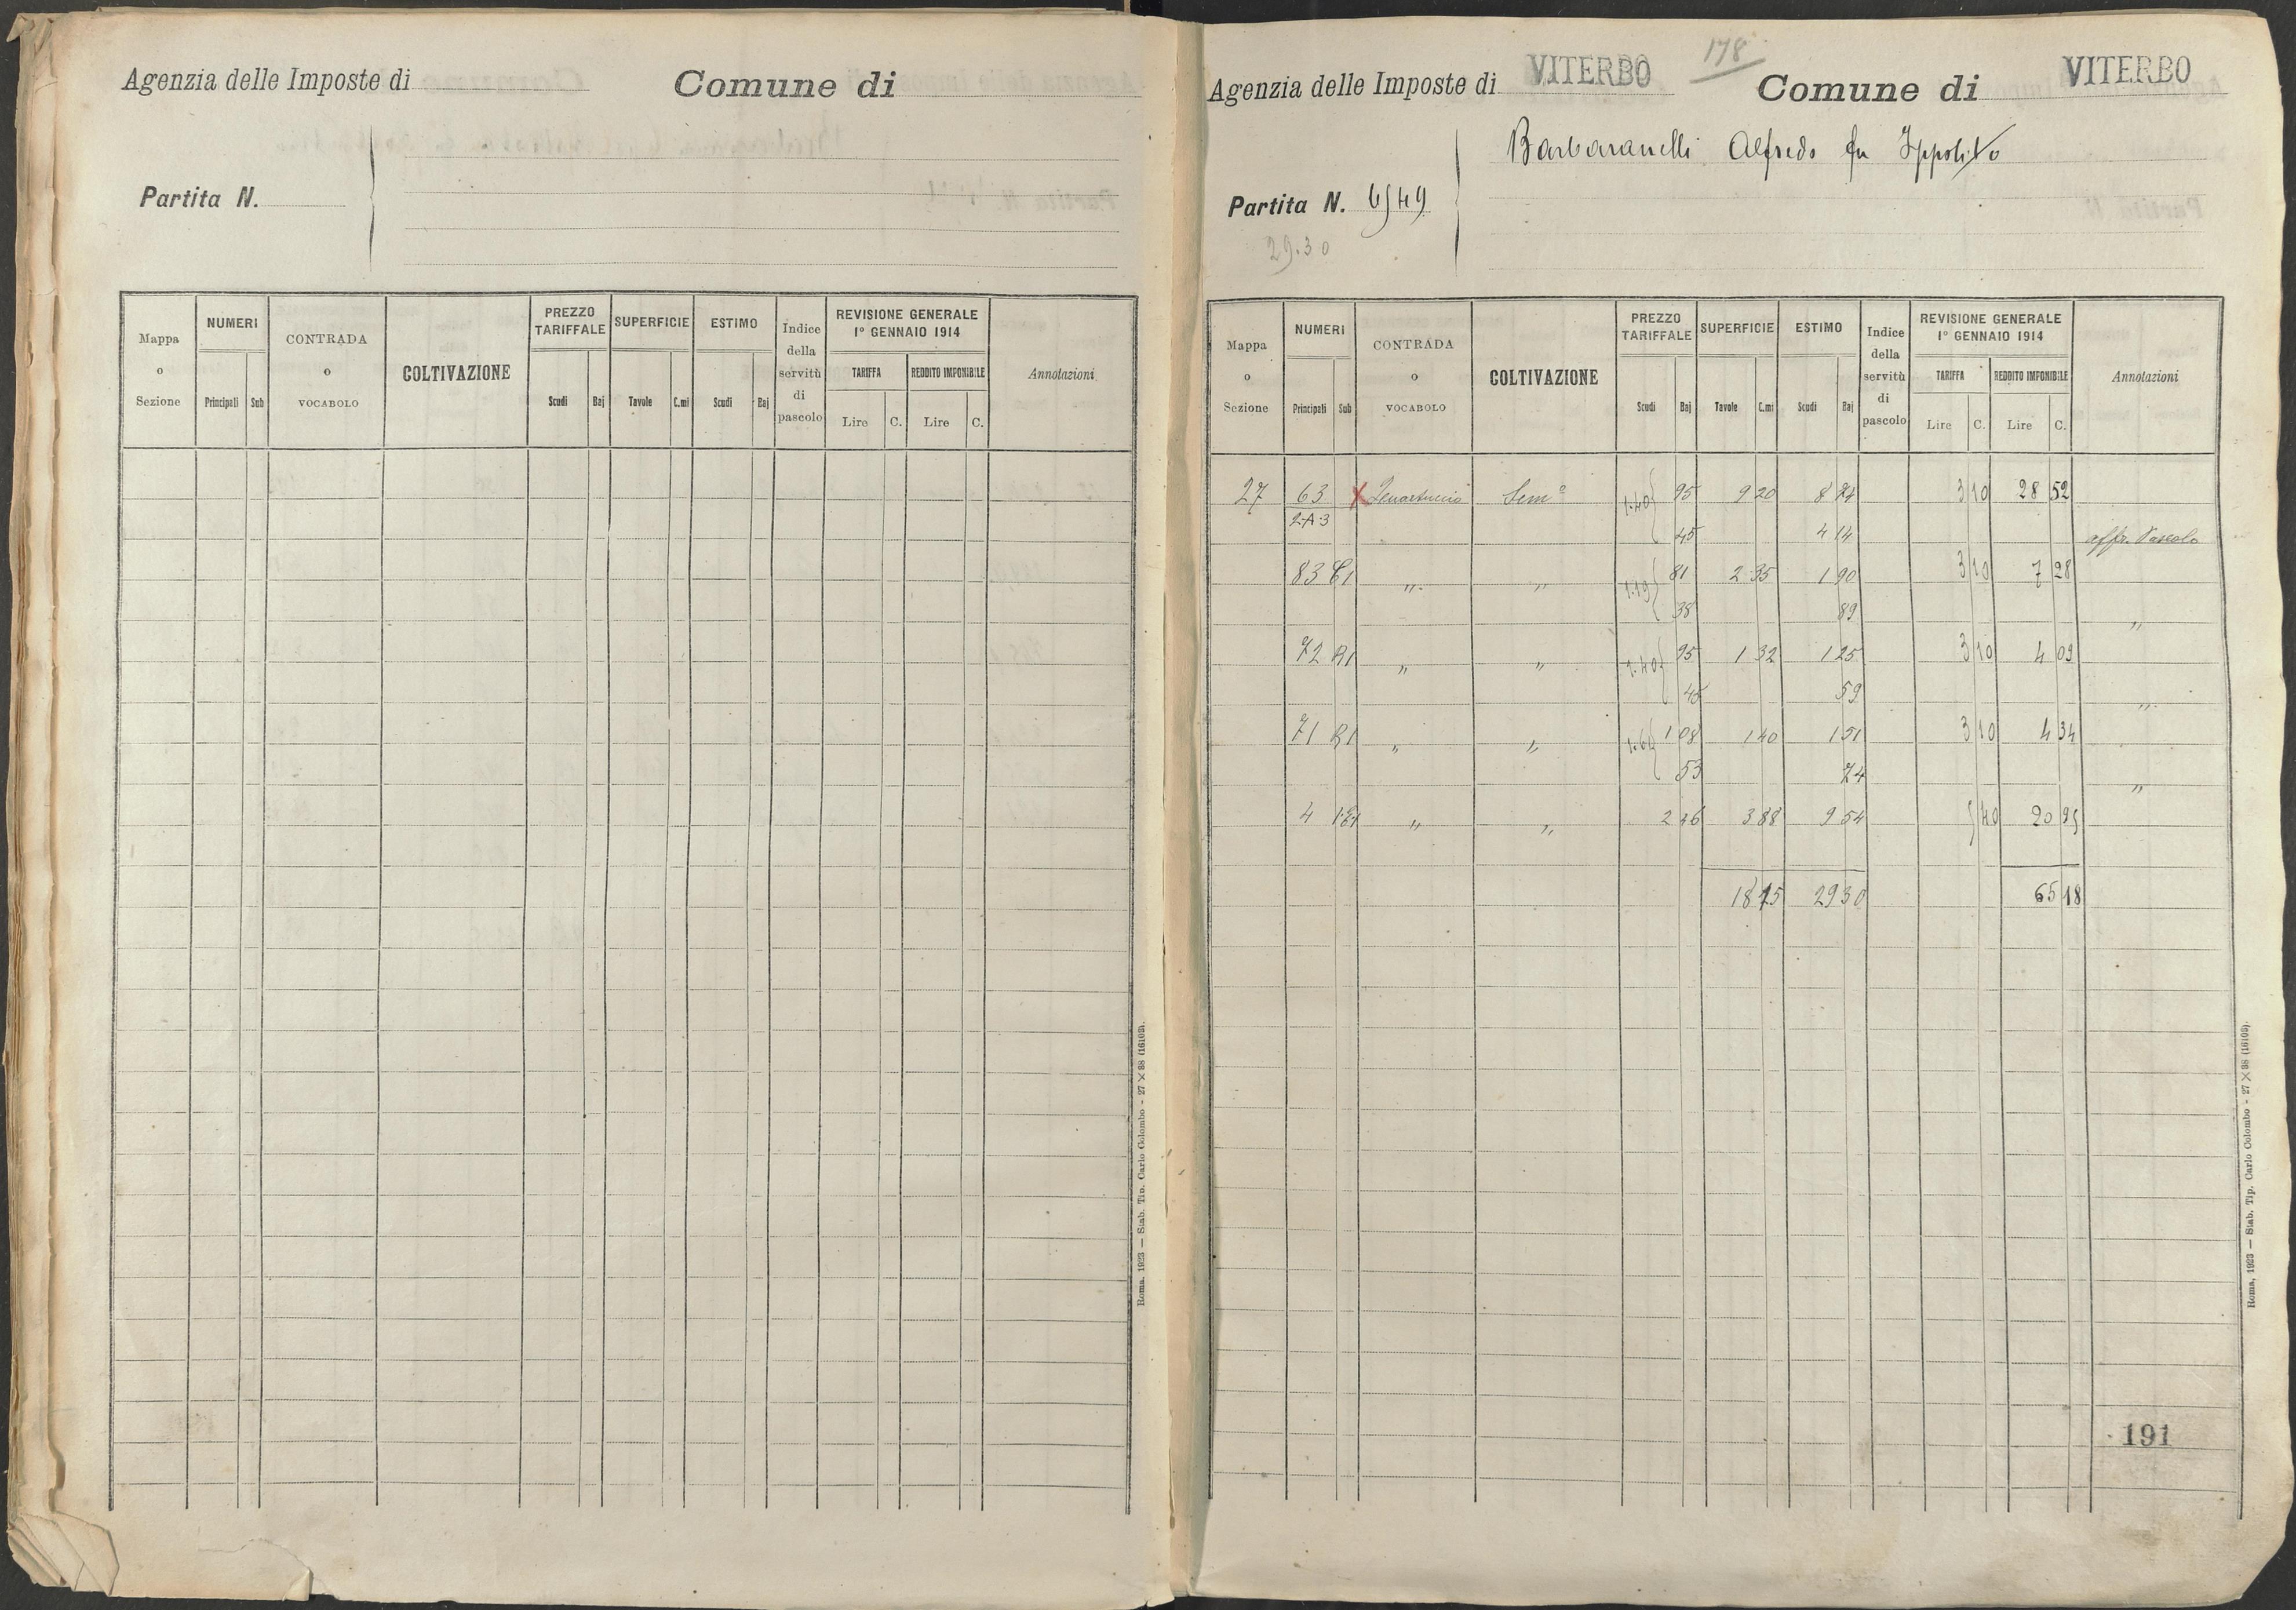 Agenzia delle Imposte di
Comune di
Partita N.
Mappa o Sezione
NUMERI
Principali Sub
CONTRADA o VOCABOLO
COLTIVAZIONE
PREZZO TARIFFALE
Scudi Baj
SUPERFICIE
Tavole C.mi
ESTIMO
Scudi Baj
Indice della servitù di pascolo
REVISIONE GENERALE
1° GENNAIO 1914
TARIFFA
Lire C.
REDDITO IMPONIBILE
Lire C.
Annotazioni
Roma, 1923 — Stab. Tip. Carlo Colombo - 27 × 38 (16103).
178
Agenzia delle Imposte di VITERBO
Comune di VITERBO
Barbaranelli Alfredo fu Ippolito
Partita N. 6549
29.30
Mappa o Sezione
NUMERI
Principali Sub
CONTRADA o VOCABOLO
COLTIVAZIONE
PREZZO TARIFFALE
Scudi Baj
SUPERFICIE
Tavole C.mi
ESTIMO
Scudi Baj
Indice della servitù di pascolo
REVISIONE GENERALE
1° GENNAIO 1914
TARIFFA
Lire C.
REDDITO IMPONIBILE
Lire C.
Annotazioni
27 63 X Sem° 1.40 95 9 20 8 74 3 10 28 52
2-A-3 45 4 14 affr. Pascolo
83 " " 1.19 81 2 35 1 90 3 10 7 28
38 89 "
72 R1 " " 1.40 95 1 32 1 25 3 10 4 09
45 59 "
71 R1 " " 1.61 1 08 1 40 1 51 3 10 4 34
53 74 "
4 " " 2 46 3 88 9 54 5 40 20 95
18 15 29 30 65 18
191
Roma, 1923 — Stab. Tip. Carlo Colombo - 27 × 38 (16103).